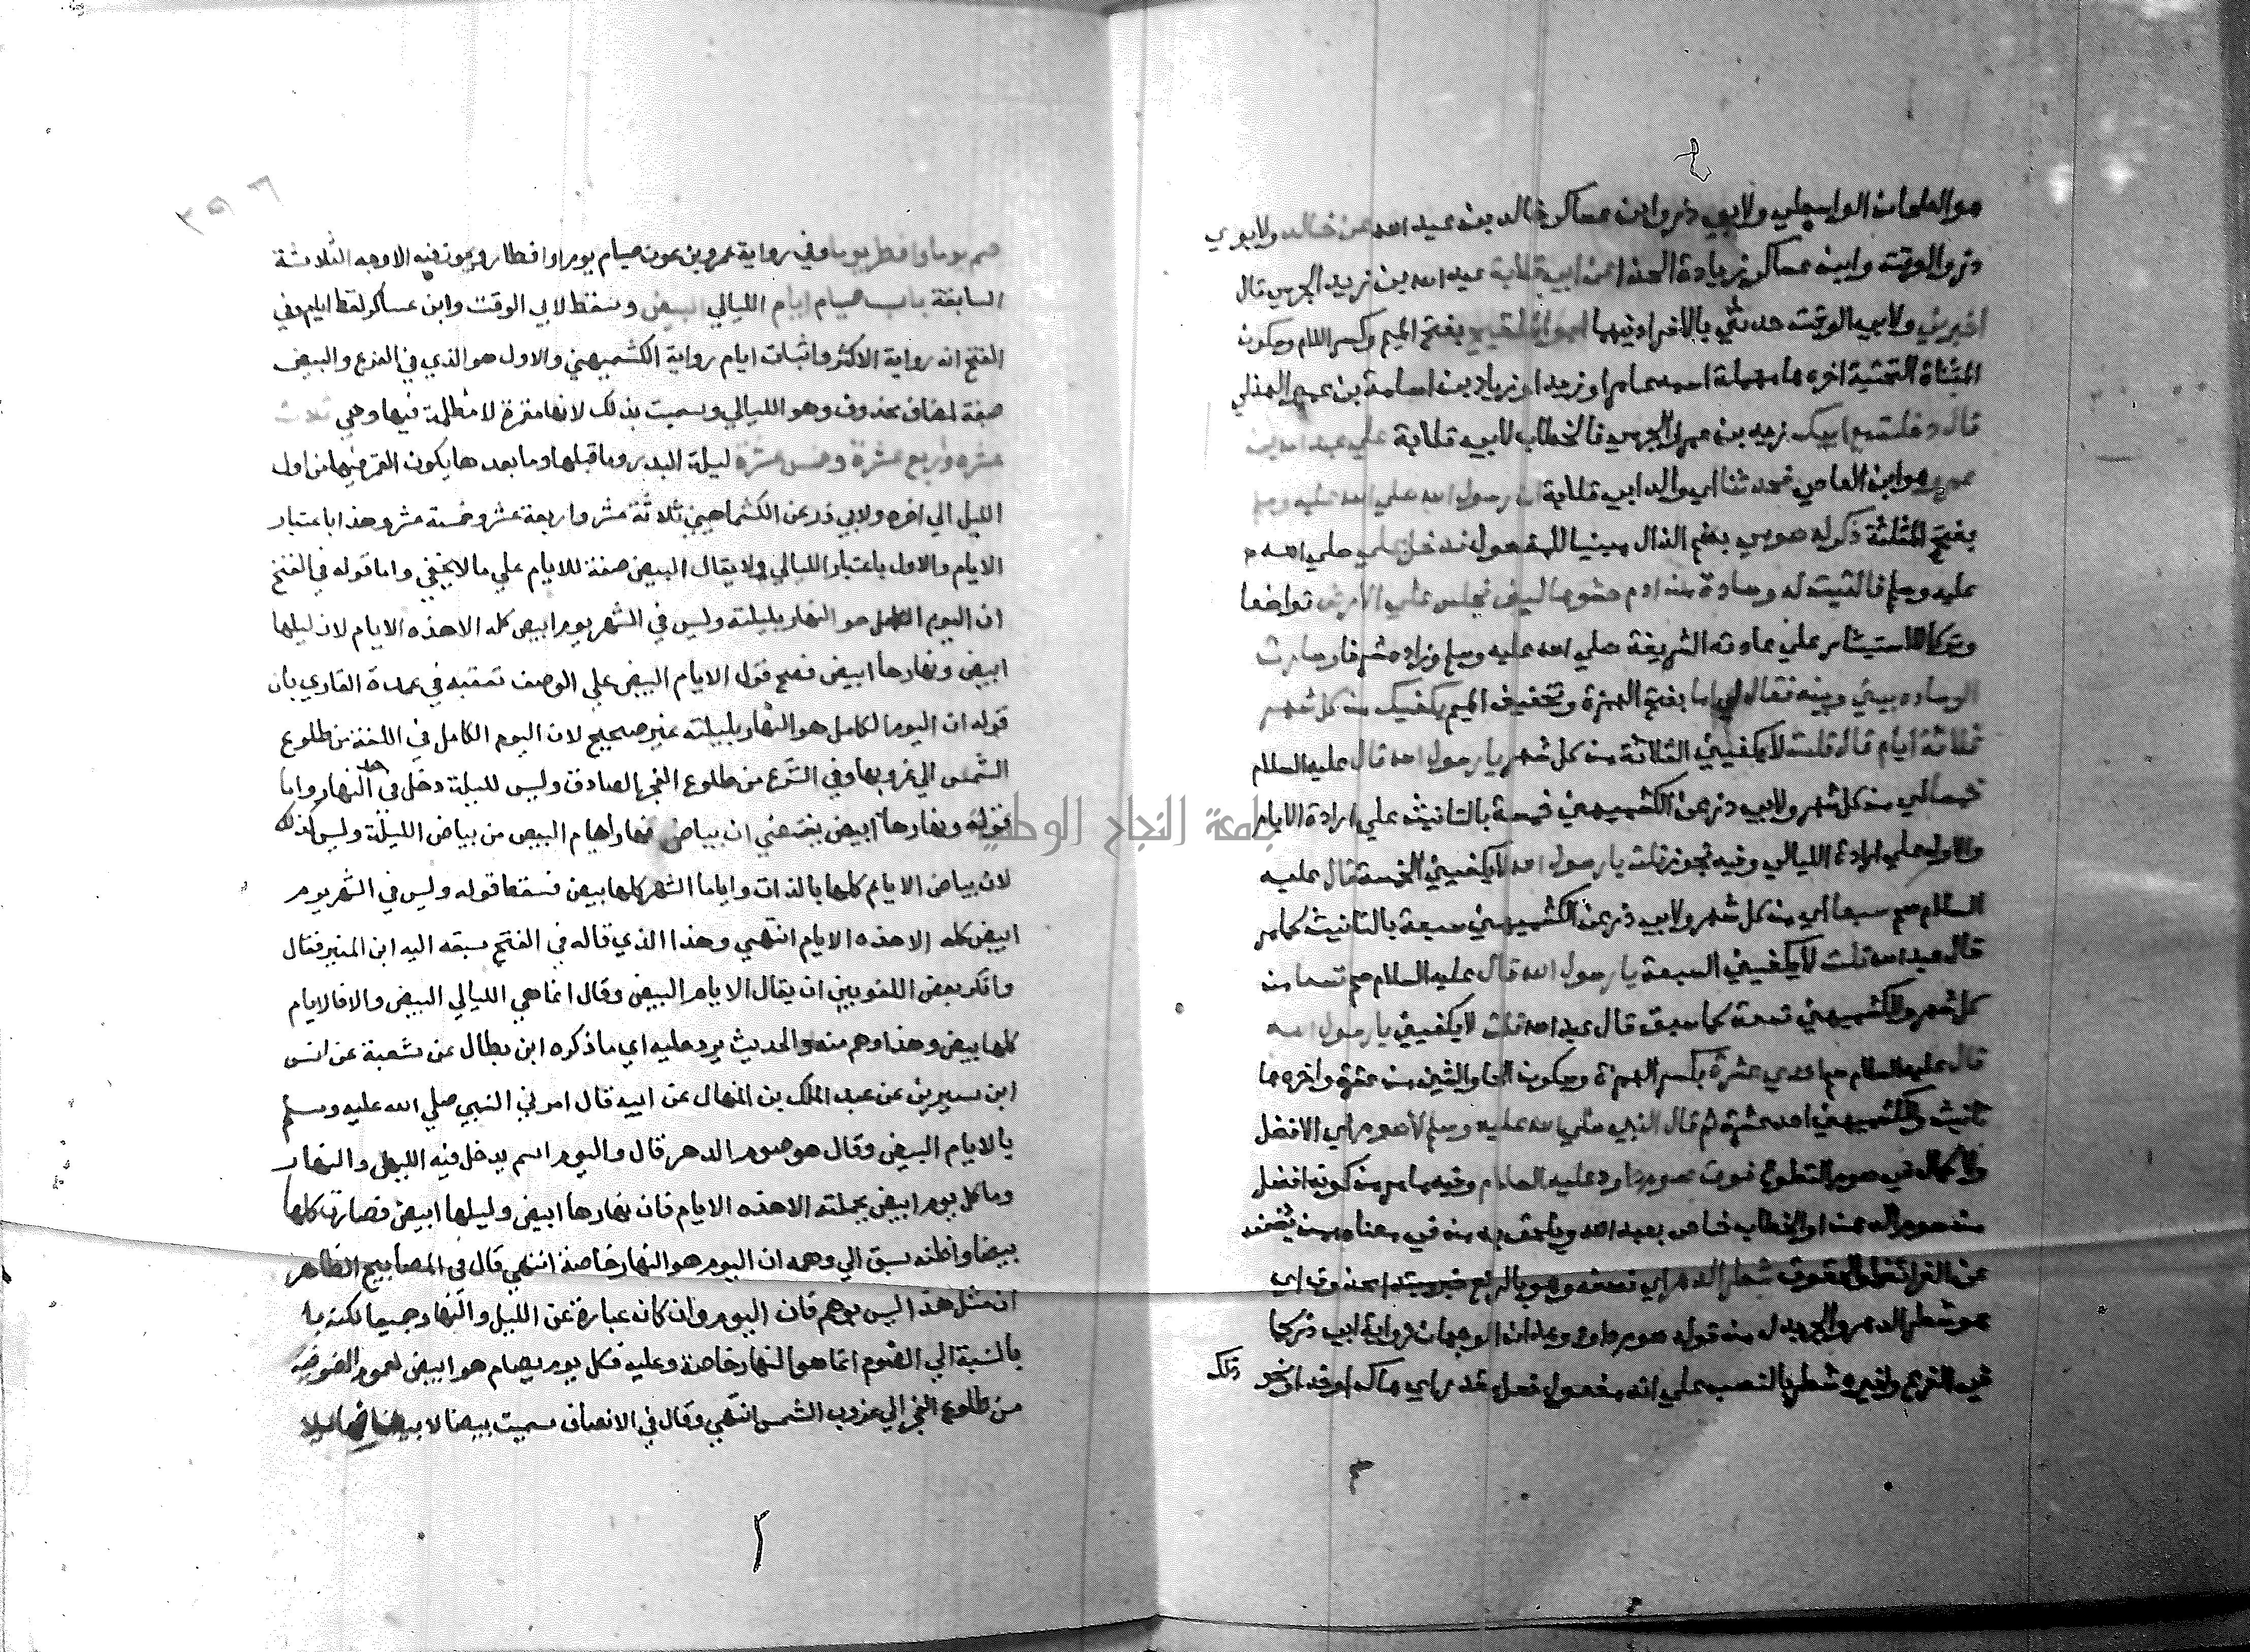 ٤
هو الطحان الواسطي ولابوي ذر وابن عساكر خالد بن عبد الله عن خالد ولابوي
ذر والوقت وابن عساكر زيادة الحذا عن ابي قلابة عبد الله بن زيد الجرمي قال
اخبرني ولابي الوقت حدثني بالافراد فيهما ابو المليح بفتح الميم وكسر اللام وسكون
المثناة التحتية اخره حا مهملة اسمه عامر او زيد او زياد بن اسامة بن عمير الهذلي
قال دخلت مع ابيك زيد بن عمرو الجرمي فالخطاب لابي قلابة علي عبد الله بن
عمرو هو ابن العاص فحدثنا اي والد ابي قلابة ان رسول الله صلي الله عليه وسلم
بفتح المثلثة ذكر له صومي بضم الذال مبنيا للمفعول فدخل علي صلي الله
عليه وسلم فالقيت له وسادة من ادم حشوها ليف فجلس علي الارض تواضعا
وتركا للاستيثار علي عادته الشريفة صلي الله عليه وسلم وزاده شرفا وصارت
الوساده بيني وبينه فقال لي اما بفتح الهمزة وتخفيف الميم يكفيك من كل شهر
ثلاثة ايام قال قلت لا يكفيني الثلاثة من كل شهر يا رسول الله قال عليه السلام
خمسا اي من كل شهر ولابي ذر عن الكشميهني خمسة بالتانيث علي ارادة الايام
والاول علي ارادة الليالي وفيه تجوز قلت يا رسول الله لا يكفيني الخمسة قال عليه
السلام صم سبعا اي من كل شهر ولابي ذر عن الكشميهني سبعة بالتانيث كما مر
قال عبد الله قلت لا يكفيني السبعة يا رسول الله قال عليه السلام صم تسعا من
كل شهر وللكشميهني تسعة كما سبق قال عبد الله قلت لا يكفيني يا رسول الله
قال عليه السلام صم احدي عشرة بكسر الهمزة وسكون الحا والشين من عشرة واخره ها
تانيث وللكشميهني احد عشر ثم قال النبي صلي الله عليه وسلم لا صوم اي لا افضل
ولا كمال في صوم التطوع فوق صوم داود عليه السلام وفيه ما مر من كونه افضل
من صوم الدهر او الخطاب خاص بعبد الله ويلحق به من في معناه ممن يضعفه
عن الفرائض والحقوق شطر الدهر اي نصفه وهو بالرفع خبر مبتدا محذوف اي
هو شطر الدهر والجر بدل من قوله صوم داود وهذان الوجهان رواية ابي ذر كما
في الفرع ولغيره شطر بالنصب علي انه مفعول فعل مقدر اي هاك او خذ او نحو ذلك
صم يوما وافطر يوما وفي رواية عمرو بن عون صيام يوم وافطار ويجوز فيه الاوجه الثلاثة
السابقة باب صيام ايام الليالي البيض وسقط لابي الوقت وابن عساكر لفظ ايام وفي
الفتح انه رواية الاكثر واثبات ايام رواية الكشميهني والاول هو الذي في الفرع والبيض
صفة لمضاف محذوف وهو الليالي وسميت بذلك لانها مقمرة لا مظلمة فيها وهي ثلاث
عشرة واربع عشرة وخمس عشرة ليلة البدر وما قبلها وما بعدها يكون القمر فيها من اول
الليل الي اخره ولابي ذر عن الكشماهيني ثلاثة عشر واربعة عشر وخمسة عشر وهذا باعتبار
الايام والاول باعتبار الليالي ولا يقال البيض صفة للايام علي ما لا يخفي واما قوله في الفتح
ان اليوم الكامل هو النهار بليلته وليس في الشهر يوم ابيض كله الا هذه الايام لان ليلها
ابيض ونهارها ابيض فصح قول الايام البيض علي الوصف تعقبه في عمدة القاري بان
قوله ان اليوم الكامل هو النهار بليلته غير صحيح لان اليوم الكامل في اللغة من طلوع
الشمس الي غروبها وفي الشرع من طلوع الفجر الصادق وليس لليلة دخل في حد النهار واما
قوله ونهارها ابيض يقتضي ان بياض نهار ايام البيض من بياض الليلة وليس كذلك
لان بياض الايام كلها بالذات واياما الشهر كلها بيض فسقط قوله وليس في الشهر يوم
ابيض كله الا هذه الايام انتهي وهذا الذي قاله في الفتح سبقه اليه ابن المنير فقال
وانكر بعض اللغويين ان يقال الايام البيض وقال انما هي الليالي البيض والا فالايام
كلها بيض وهذا وهم منه والحديث يرد عليه اي ما ذكره ابن بطال عن شعبة عن انس
ابن سيرين عن عبد الملك بن المنهال عن ابيه قال امرني النبي صلي الله عليه وسلم
بالايام البيض وقال هو صوم الدهر قال واليوم اسم يدخل فيه الليل والنهار
وما كل يوم ابيض بجملته الا هذه الايام فان نهارها ابيض وليلها ابيض فصارت كلها
بيضا واظنه سبق الي وهمه ان اليوم هو النهار خاصة انتهي قال في المصابيح الظاهر
ان مثل هذا ليس بوهم فان اليوم وان كان عبارة عن الليل والنهار جميعا لكنه
بالنسبة الي الصوم انما هو النهار خاصة وعليه فكل يوم يصام هو ابيض لعموم الضو فيه
من طلوع الفجر الي غروب الشمس انتهي وقال في الانصاف سميت بيضا لابيضاضها ليلا
جامعة النجاح الوطنية